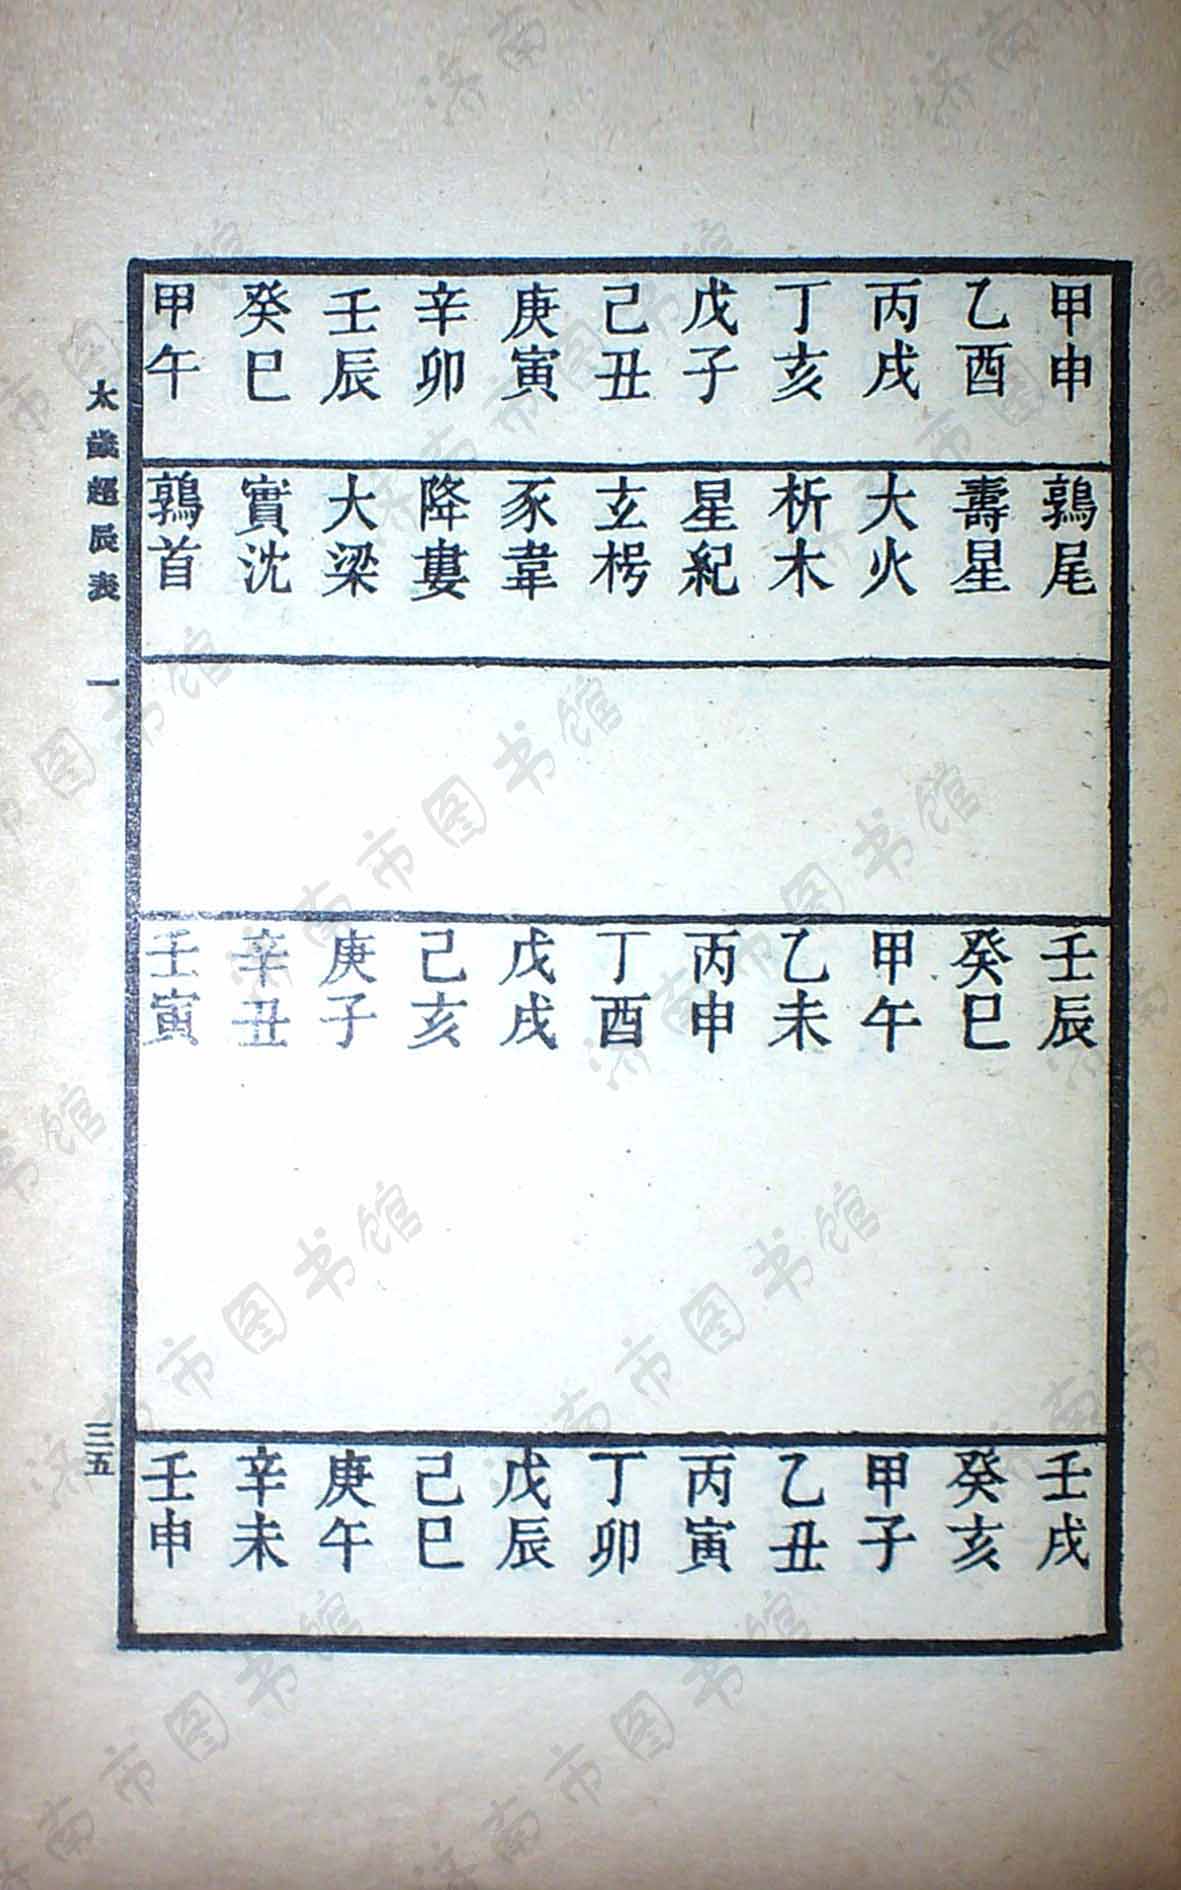 甲申 乙酉 丙戌 丁亥 戊子 己丑 庚寅 辛卯 壬辰 癸巳 甲午
鶉尾 壽星 大火 析木 星紀 玄枵 豕韋 降婁 大梁 實沈 鶉首
壬辰 癸巳 甲午 乙未 丙申 丁酉 戊戌 己亥 庚子 辛丑 壬寅
壬戌 癸亥 甲子 乙丑 丙寅 丁卯 戊辰 己巳 庚午 辛未 壬申
太歲超辰表 一
三五
济南市图书馆